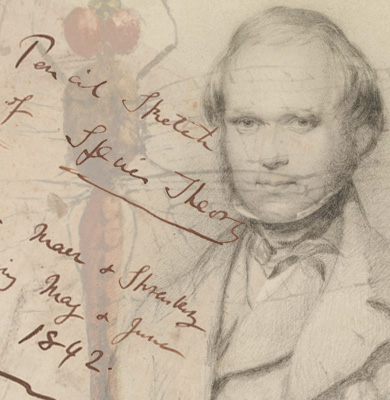 Pencil Sketch
of Species Theory
Maer & Shrewsbury
May & June
1842.